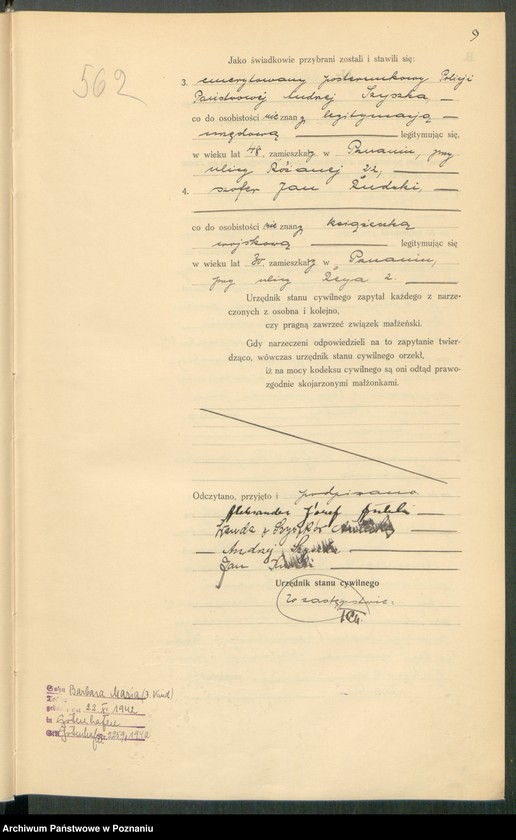 9
562
Jako świadkowie przybrani zostali i stawili się:
3. emerytowany posterunkowy Policji
Państwowej Andrzej Szyszka,
co do osobistości nie znany legitymacją
urzędową legitymując się,
w wieku lat 48, zamieszkały w Poznaniu, przy
ulicy Różanej 22,
4. szofer Jan Żudzki,
co do osobistości nie znany książeczką
wojskową legitymując się
w wieku lat zamieszkały w Poznaniu,
przy ulicy 2.
Urzędnik stanu cywilnego zapytał każdego z narze-
czonych z osobna i kolejno,
czy pragną zawrzeć związek małżeński.
Gdy narzeczeni odpowiedzieli na to zapytanie twier-
dząco, wówczas urzędnik stanu cywilnego orzekł,
iż na mocy kodeksu cywilnego są oni odtąd prawo-
zgodnie skojarzonymi małżonkami.
Odczytano, przyjęto i podpisano
Aleksander Józef
Wanda z Szyszków
Andrzej Szyszka
Jan
Urzędnik stanu cywilnego
W zastępstwie:
Sohn Barbara Maria (1. Kind)
22. XI. 1942
in Gotenhafen
Gotenhafen 2259/1942
Archiwum Państwowe w Poznaniu